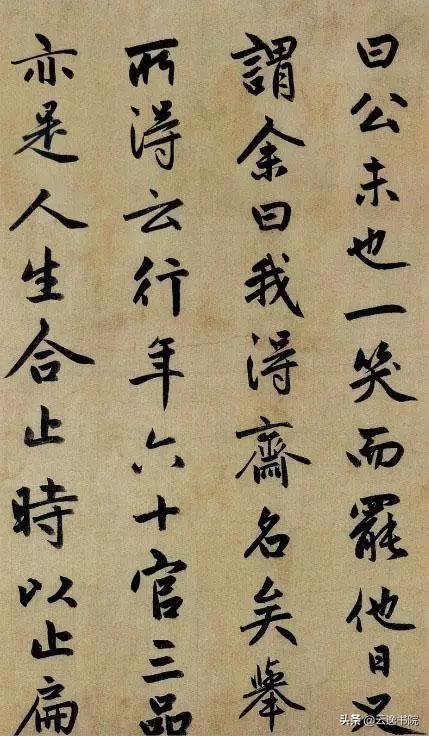 曰公未也一笑而罷他日足
謂余曰我得齋名矣舉
所得云行年六十官三品
亦是人生合止時以止扁
头条 @云逸书院